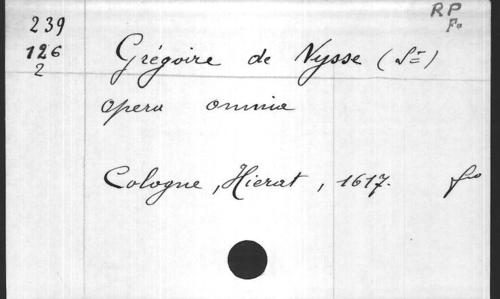 239
126
2
RP
fo
Grégoire de Nysse (St)
opera omnia
Cologne, Hierat, 1617. fo